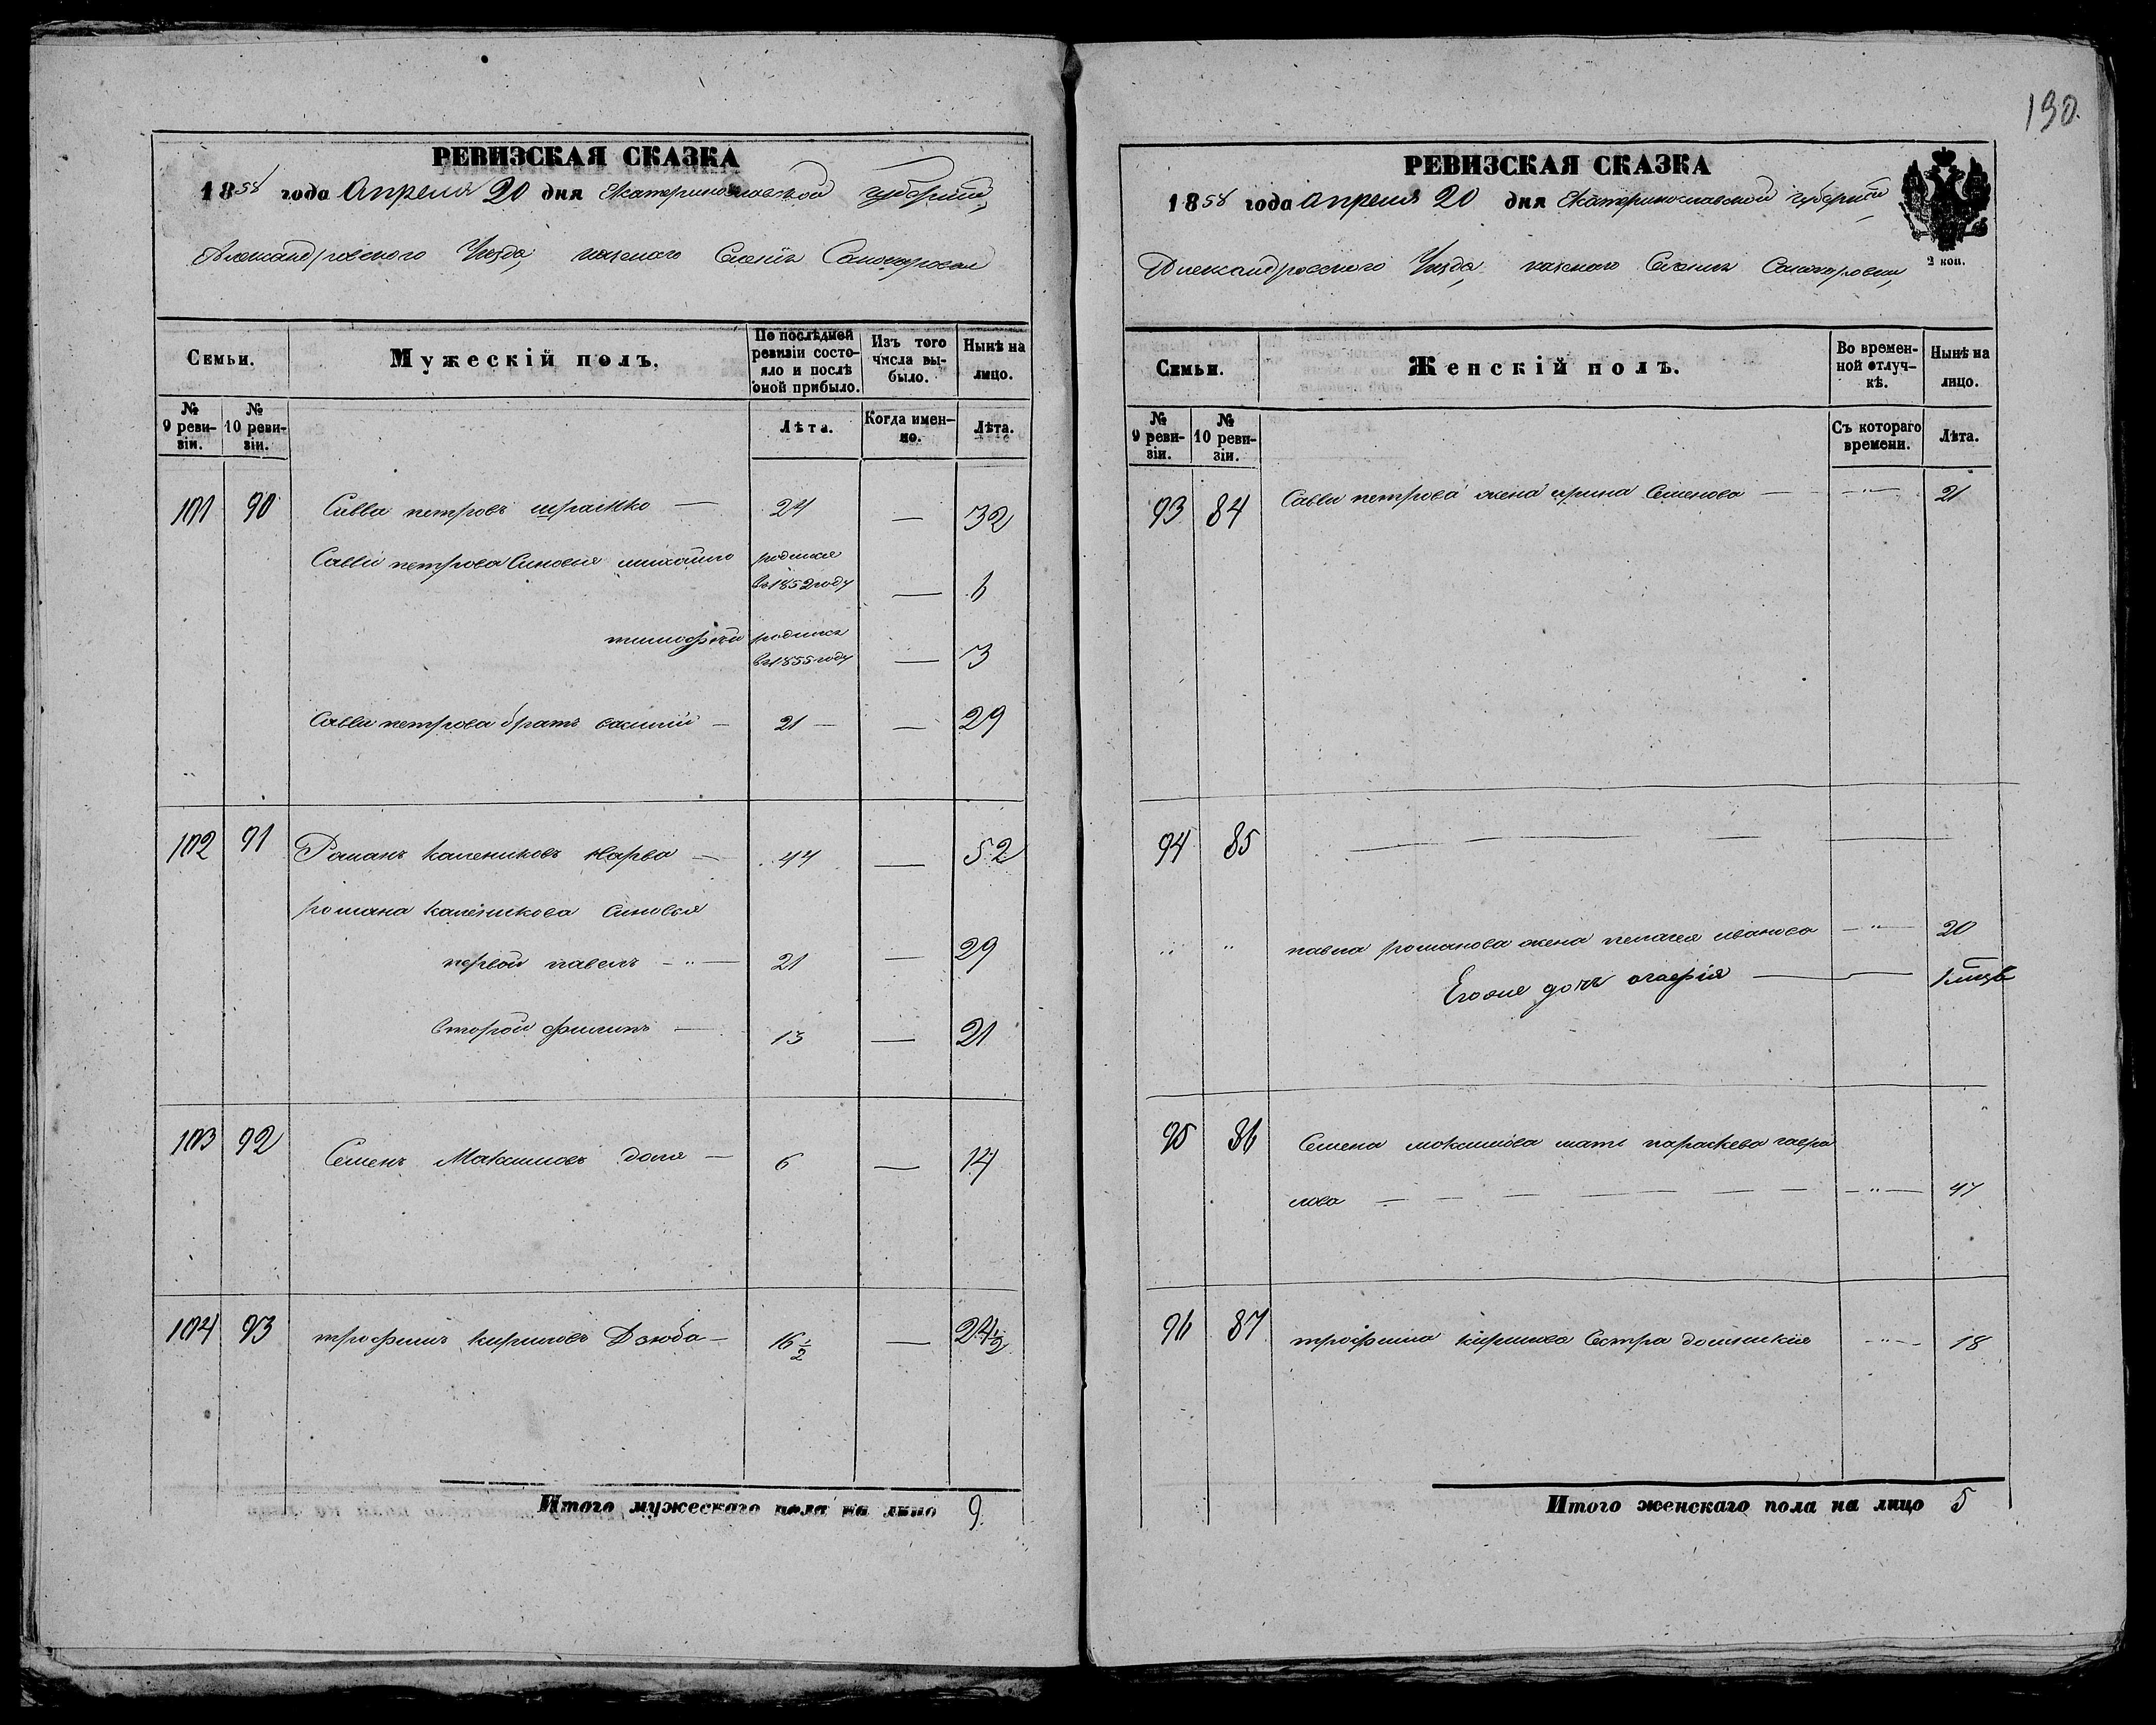 190.
РЕВИЗСКАЯ СКАЗКА
1858 года Апреля 20 дня Екатеринославской губернии,
Александровского Уезда, казеного Селенія
Семьи.
Мужескій полъ.
По послѣдней ревизіи состояло и послѣ оной прибыло.
Изъ того числа выбыло.
Нынѣ на лицо.
№ 9 ревизіи.
№ 10 ревизіи.
Лѣта.
Когда именно.
Лѣта.
101 90 Савва петровъ — 24 — 32
Савви петрова Синовья михайло родился
въ 1852 году — 6
тимофѣй родился
въ 1855 году — 3
Савви петрова братъ василий — 21 — — 29
102 91 Романъ калениковъ Нарва — 44 — 52
романа каленикова Синовья
первой павелъ — 21 — 29
второй филипъ — 13 — 21
103 92 Семенъ Максимовъ доля — 6 — 14
104 93 трофимъ кириловъ Дзюба — 16 1/2 — 24 1/2
Итого мужескаго пола на лицо 9.
РЕВИЗСКАЯ СКАЗКА
1858 года апреля 20 дня Екатеринославской губернии
2 коп.
Александровского Уезда, казеного Селенія
Семьи.
Женскій полъ.
Во временной отлучкѣ.
Нынѣ на лицо.
№ 9 ревизіи.
№ 10 ревизіи.
Съ котораго времени.
Лѣта.
93 84 Савви петрова жена ирина Семенова — — " — 21
94 85 — — — — —
" " павла романова жена пелагея иванова — " — 20
Егоже дочь — — 1 мцъ
95 86 Семена максимова мать параскева гаври
лова — — — — — — — " — 47
96 87 трофима кирилова Сестра домникия — " — 18
Итого женскаго пола на лицо 5